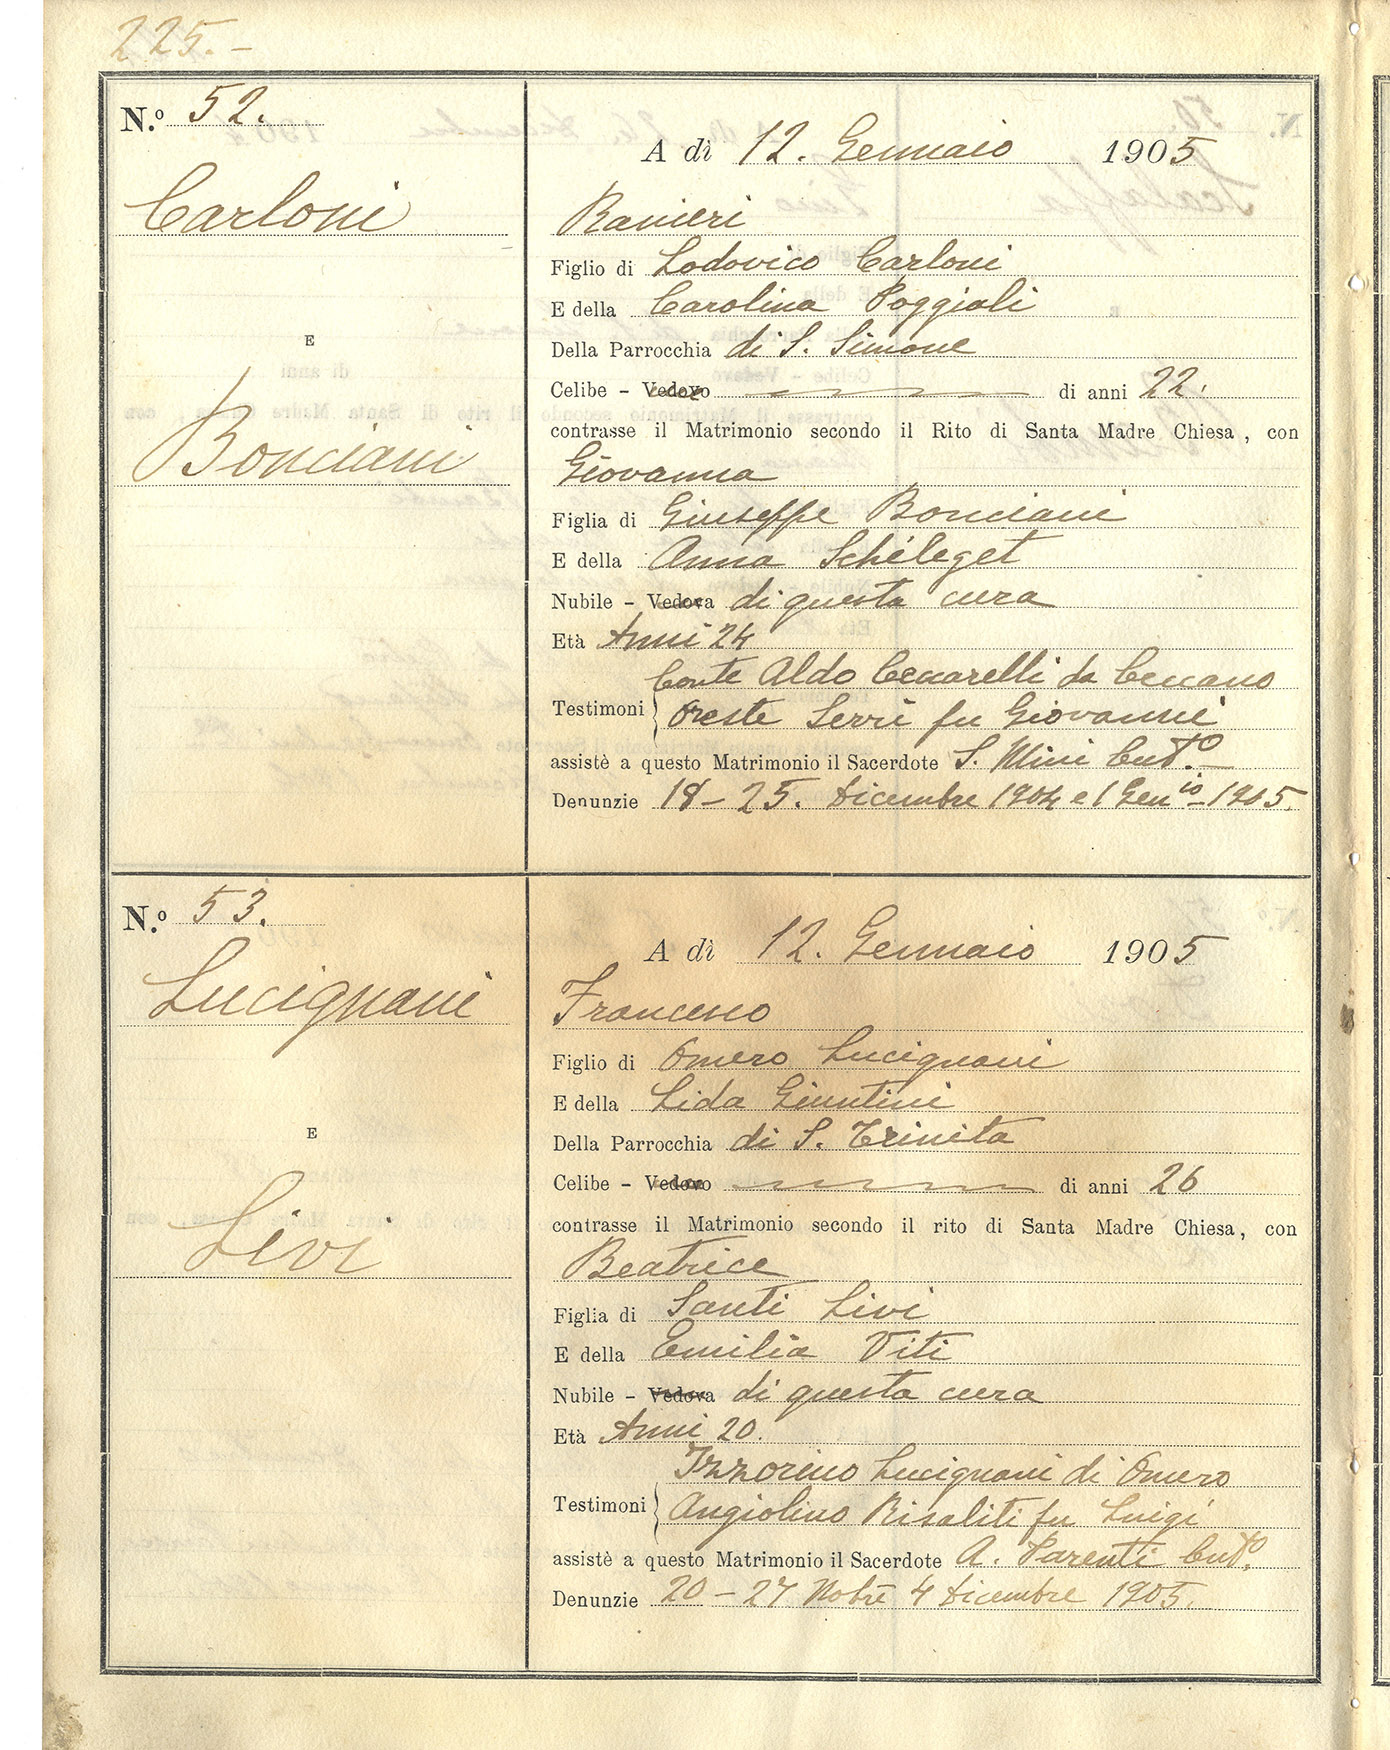 225.-
N.º 52.
Carloni
E
Bonciani
A dì 12. Gennaio 1905
Ranieri
Figlio di Lodovico Carloni
E della Carolina Poggiali
Della Parrocchia di S. Simone
Celibe - Vedovo di anni 22.
contrasse il Matrimonio secondo il Rito di Santa Madre Chiesa, con
Giovanna
Figlia di Giuseppe Bonciani
E della Anna Schëleget
Nubile - Vedova di questa cura
Età Anni 24
Conte Aldo Ceccarelli da Ceccano
Testimoni Oreste Serri fu Giovanni
assistè a questo Matrimonio il Sacerdote S. Mini Cutº.
Denunzie 18-25. Dicembre 1904 e 1 Genio-1905.
N.º 53.
Lucignani
E
Livi
A dì 12. Gennaio 1905
Francesco
Figlio di Omero Lucignani
E della Lida Giuntini
Della Parrocchia di S. Trinita
Celibe - Vedovo di anni 26
contrasse il Matrimonio secondo il rito di Santa Madre Chiesa, con
Beatrice
Figlia di Santi Livi
E della Emilia Viti
Nubile - Vedova di questa cura
Età Anni 20.
Lucignani di Omero
Testimoni Angiolino Risaliti fu Luigi
assistè a questo Matrimonio il Sacerdote A. Parenti Cutº.
Denunzie 20-27 Nobre 4 Dicembre 1905.